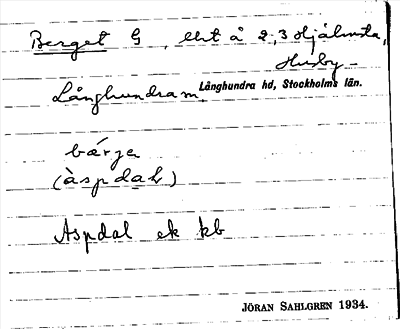 Berget G, lht å 2,3 Hjälmsta,
Husby-
Långhundra m. Långhundra hd, Stockholms län.
bærje
(àspdaL)
Aspdal ek kb
JÖRAN SAHLGREN 1934.